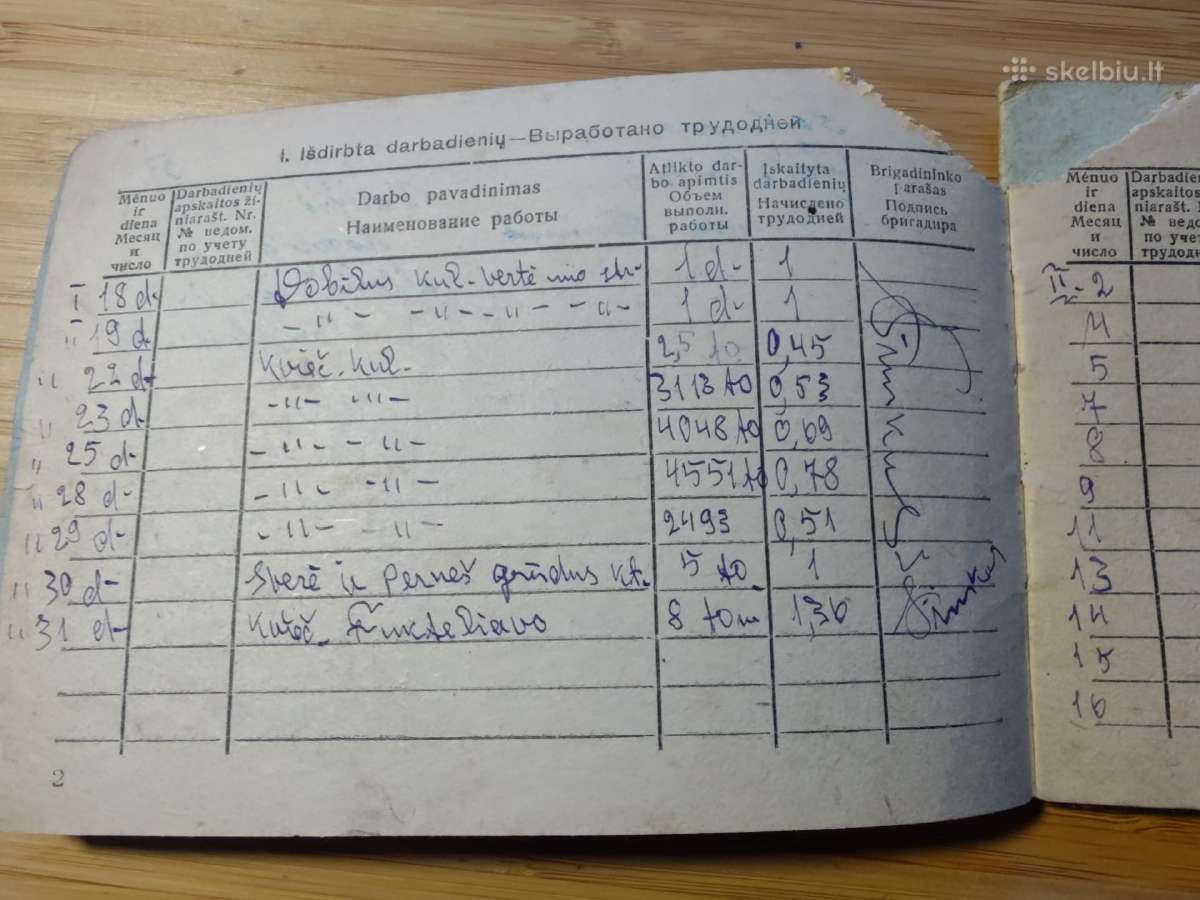 skelbiu.lt
I. Išdirbta darbadienių—Выработано трудодней
Mėnuo ir diena Месяц и число
Darbadienių apskaitos žiniarašt. Nr. № ведом. по учету трудодней
Darbo pavadinimas Наименование работы
Atlikto darbo apimtis Объем выполн. работы
Įskaityta darbadienių Начислено трудодней
Brigadininko parašas Подпись бригадира
I 18 d- Dobilus kul- 1 d- 1
" 19 d- -"- -"- -"- -"- 1 d- 1
" 22 d- Kvieč. kul. 2,5 to 0,45
" 23 d- -"- -"- 3113 to 0,53
" 25 d- -"- -"- 4048 to 0,69
" 28 d- -"- -"- 4551 to 0,78
" 29 d- -"- -"- 2493 0,51
" 30 d- Svėrė ir perneš grūdus 5 to. 1
" 31 d- Kvieč. 8 1,36
2
Mėnuo ir diena Месяц и число
II-2
4
5
7
8
9
11
13
14
15
16